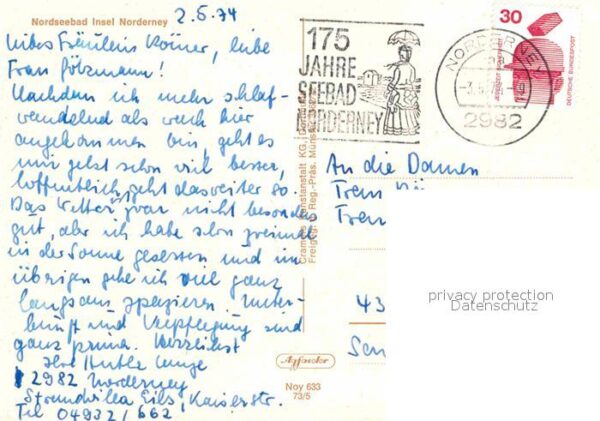 Nordseebad Insel Norderney
2.6.74
Liebes Fräulein Körner, liebe
Frau Götzmann!
Nachdem ich mehr schlaf-
wandelnd als wach hier
angekommen bin, geht es
mir jetzt schon viel besser,
hoffentlich geht das weiter so.
Das Wetter war nicht besonders
gut, aber ich habe schon zweimal
in der Sonne gesessen und im
übrigen gehe ich viel ganz
langsam spazieren. Unter-
kunft und Verpflegung sind
ganz prima. Herzlichst
Ihre
2982 Norderney
Strandvilla Eils, Kaiserstr.
Tel 04932/662
175
JAHRE
SEEBAD
NORDERNEY
NORDERNEY
2982
30
DEUTSCHE BUNDESPOST
Cramers Kunstanstalt KG,
Freigeg. Reg.-Präs. Münster
An die Damen
43
Agfacolor
Noy 633
73/5
privacy protection
Datenschutz